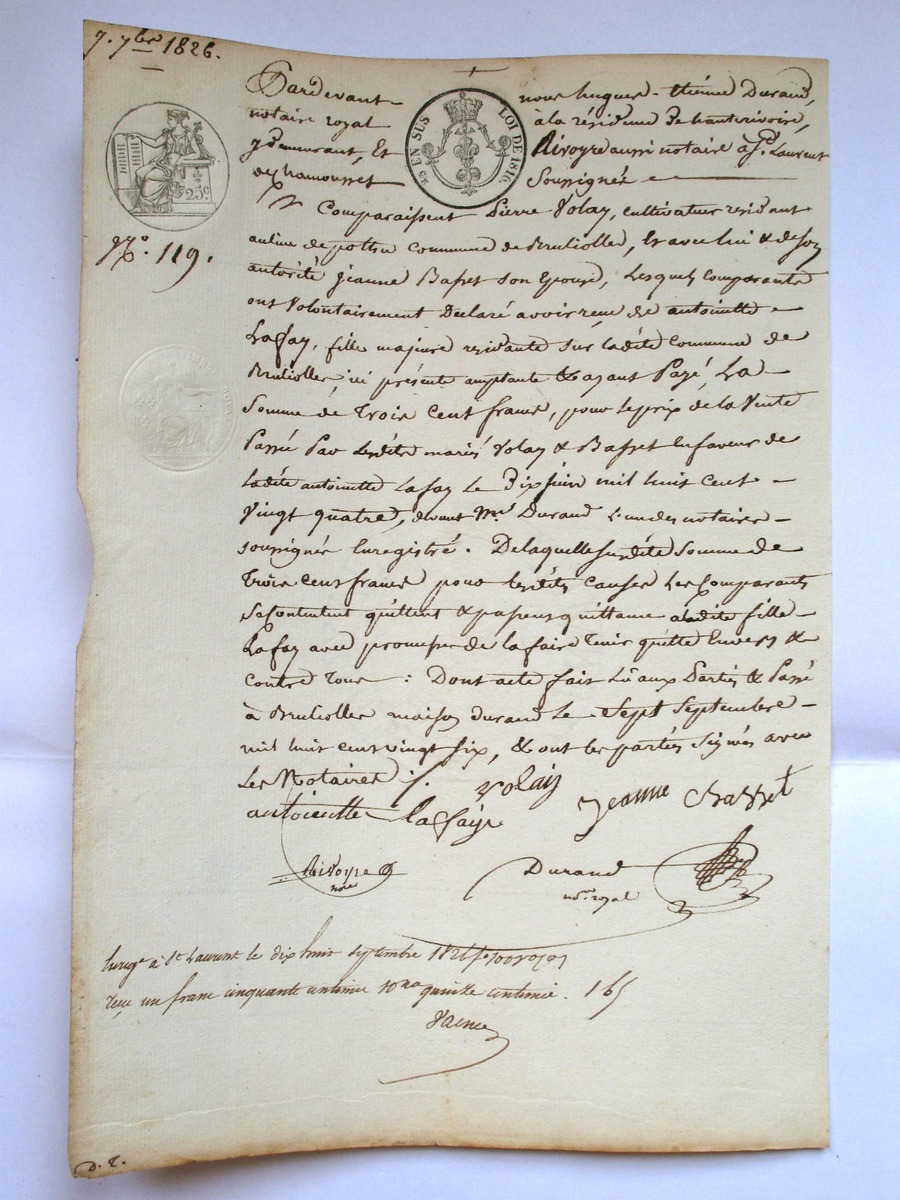 7. 7bre 1826.
Pardevant nous hugues-étienne Durand,
notaire royal à la résidence de hauterivoire,
y demeurant, Et Rivoyre aussi notaire à St. Laurent
de chamousset Soussignés
EN SUS LOI DE 1816.
25c.
No. 119.
Comparaissent Pierre Volay, cultivateur residant
au lieu de pottu commune de Brulliolles, Et avec lui & de son
autorité jeanne Basset son Epouse, Lesquels Comparants
ont Volontairement Declaré avoir reçu de antoinette
Lafay, fille majeure residante sur ladite Commune de
Brulliolles, ici présente acceptante & ayant Payé, La
Somme de Trois Cent francs, pour le prix de la Vente
Passée Par lesdits mariés Volay & Basset En faveur de
ladite antoinette Lafay Le Dix juin mil huit Cent
Vingt quatre, devant Me. Durand L'un des notaires
soussignés Enregistré. De laquelle susdite Somme de
Trois Cent francs pour lesdites causes Les Comparants
Se contentent quittent & passent quittance à ladite fille
Lafay avec promesse de la faire Tenir quitte Envers &
Contre Tous : Dont acte fait Lu aux Parties & Passé
à Brulliolles maison durand Le Sept Septembre
mil huit cent vingt six, & ont les parties Signés avec
Les Notaires ./.
Volaiy jeanne Basset
antoinette lafaije
Rivoyre
nore
Durand
nore. royal
Enregé à St Laurent le dix huit septembre 1826
reçu un franc cinquante centimes 10me quinze centimes. 1 65
D. T.